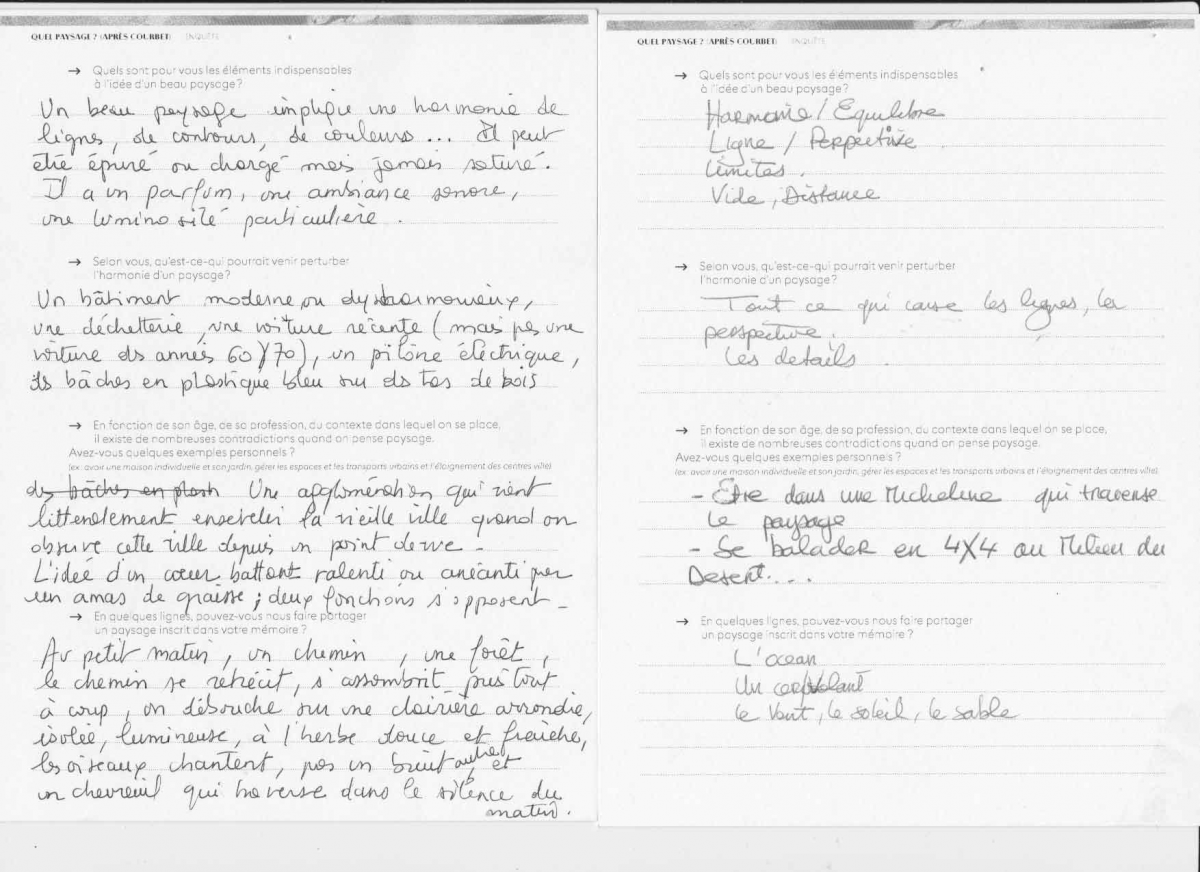 QUEL PAYSAGE ? (APRÈS COURBET) ENQUÊTE
→ Quels sont pour vous les éléments indispensables
à l'idée d'un beau paysage ?
Un beau paysage implique une harmonie de
lignes, de contours, de couleurs... Il peut
être épuré ou chargé mais jamais saturé.
Il a un parfum, une ambiance sonore,
une luminosité particulière.
→ Selon vous, qu'est-ce-qui pourrait venir perturber
l'harmonie d'un paysage ?
Un bâtiment moderne ou dysharmonieux,
une déchetterie, une voiture récente (mais pas une
voiture des années 60/70), un pilône électrique,
des bâches en plastique bleu sur des tas de bois
→ En fonction de son âge, de sa profession, du contexte dans lequel on se place,
il existe de nombreuses contradictions quand on pense paysage.
Avez-vous quelques exemples personnels ?
(ex: avoir une maison individuelle et son jardin, gérer les espaces et les transports urbains et l'éloignement des centres ville)
des bâches en plast Une agglomération qui vient
littéralement ensevelir la vieille ville quand on
observe cette ville depuis un point de vue -
L'idée d'un cœur battant ralenti ou anéanti par
un amas de graisse ; deux fonctions s'opposent -
→ En quelques lignes, pouvez-vous nous faire partager
un paysage inscrit dans votre mémoire ?
Au petit matin, un chemin, une forêt,
le chemin se rétrécit, s'assombrit puis tout
à coup, on débouche sur une clairière arrondie,
isolée, lumineuse, à l'herbe douce et fraîche,
les oiseaux chantent, pas un bruit autre, et
un chevreuil qui traverse dans le silence du
matin.
QUEL PAYSAGE ? (APRÈS COURBET) ENQUÊTE
→ Quels sont pour vous les éléments indispensables
à l'idée d'un beau paysage ?
Harmonie / Equilibre
Ligne / Perpective
Limites.
Vide, Distance
→ Selon vous, qu'est-ce-qui pourrait venir perturber
l'harmonie d'un paysage ?
Tout ce qui casse les lignes, la
perspective.
Les details.
→ En fonction de son âge, de sa profession, du contexte dans lequel on se place,
il existe de nombreuses contradictions quand on pense paysage.
Avez-vous quelques exemples personnels ?
(ex: avoir une maison individuelle et son jardin, gérer les espaces et les transports urbains et l'éloignement des centres ville)
- Etre dans une Micheline qui traverse
le paysage
- Se balader en 4X4 au Milieu du
Desert....
→ En quelques lignes, pouvez-vous nous faire partager
un paysage inscrit dans votre mémoire ?
L'ocean
Un cerf volant
le Vent, le soleil, le sable